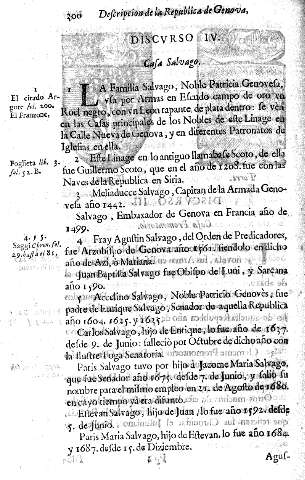 200 Descripcion de la Republica de Genova,
DISCVRSO IV.
Casa Salvago.
1
El citado Argote
fol. 100.
El Franzone.
1 LA Familia Salvago, Noble Patricia Genovesa,
vsa por Armas en Escudo campo de oro vn
Roel negro, con vn Leon rapante, de plata dentro: se vèn
en las Casas principales de los Nobles de este Linage en
la Calle Nueva de Genova, y en diferentes Patronatos de
Iglesias en ella.
Foglieta lib. 3.
fol. 52. B.
2 Este Linage en lo antiguo llamabase Scoto, de ella
fue Guillermo Scoto, que en el año de 1208. fue con las
Naves de la Republica en Siria.
3 Meliaducce Salvago, Capitan de la Armada Genovesa
año 1442.
Salvago, Embaxador de Genova en Francia año de
1499.
4. y 5.
fol.
29. hasta el 81.
4 Fray Agustin Salvago, del Orden de Predicadores,
fue Arzobispo de Genova año 1561. siendolo en dicho
año de Azi, ò Mariana.
Juan Baptista Salvago fue Obispo de Luni, y Sarçana
año 1590.
5 Accelino Salvago, Noble Patricio Genovès, fue
padre de Enrique Salvago, Senador de aquella Republica
año 1604. 1625. y 1635.
Carlos Salvago, hijo de Enrique, lo fue año de 1637.
desde 9. de Junio: falleciò por Octubre de dicho año con
la Ilustre Toga Senatoria.
Paris Salvago tuvo por hijo à Jacome Maria Salvago,
que fue Senador año 1675. desde 7. de Junio, y saliò su
nombre para el mismo empleo en 21. de Agosto de 1680.
en cayo tiempo yà era difunto.
Estevan Salvago, hijo de Juan, lo fue año 1592. desde
5. de Junio.
Paris Maria Salvago, hijo de Estevan, lo fue año 1684.
y 1687. desde 15. de Diziembre.
Agus-